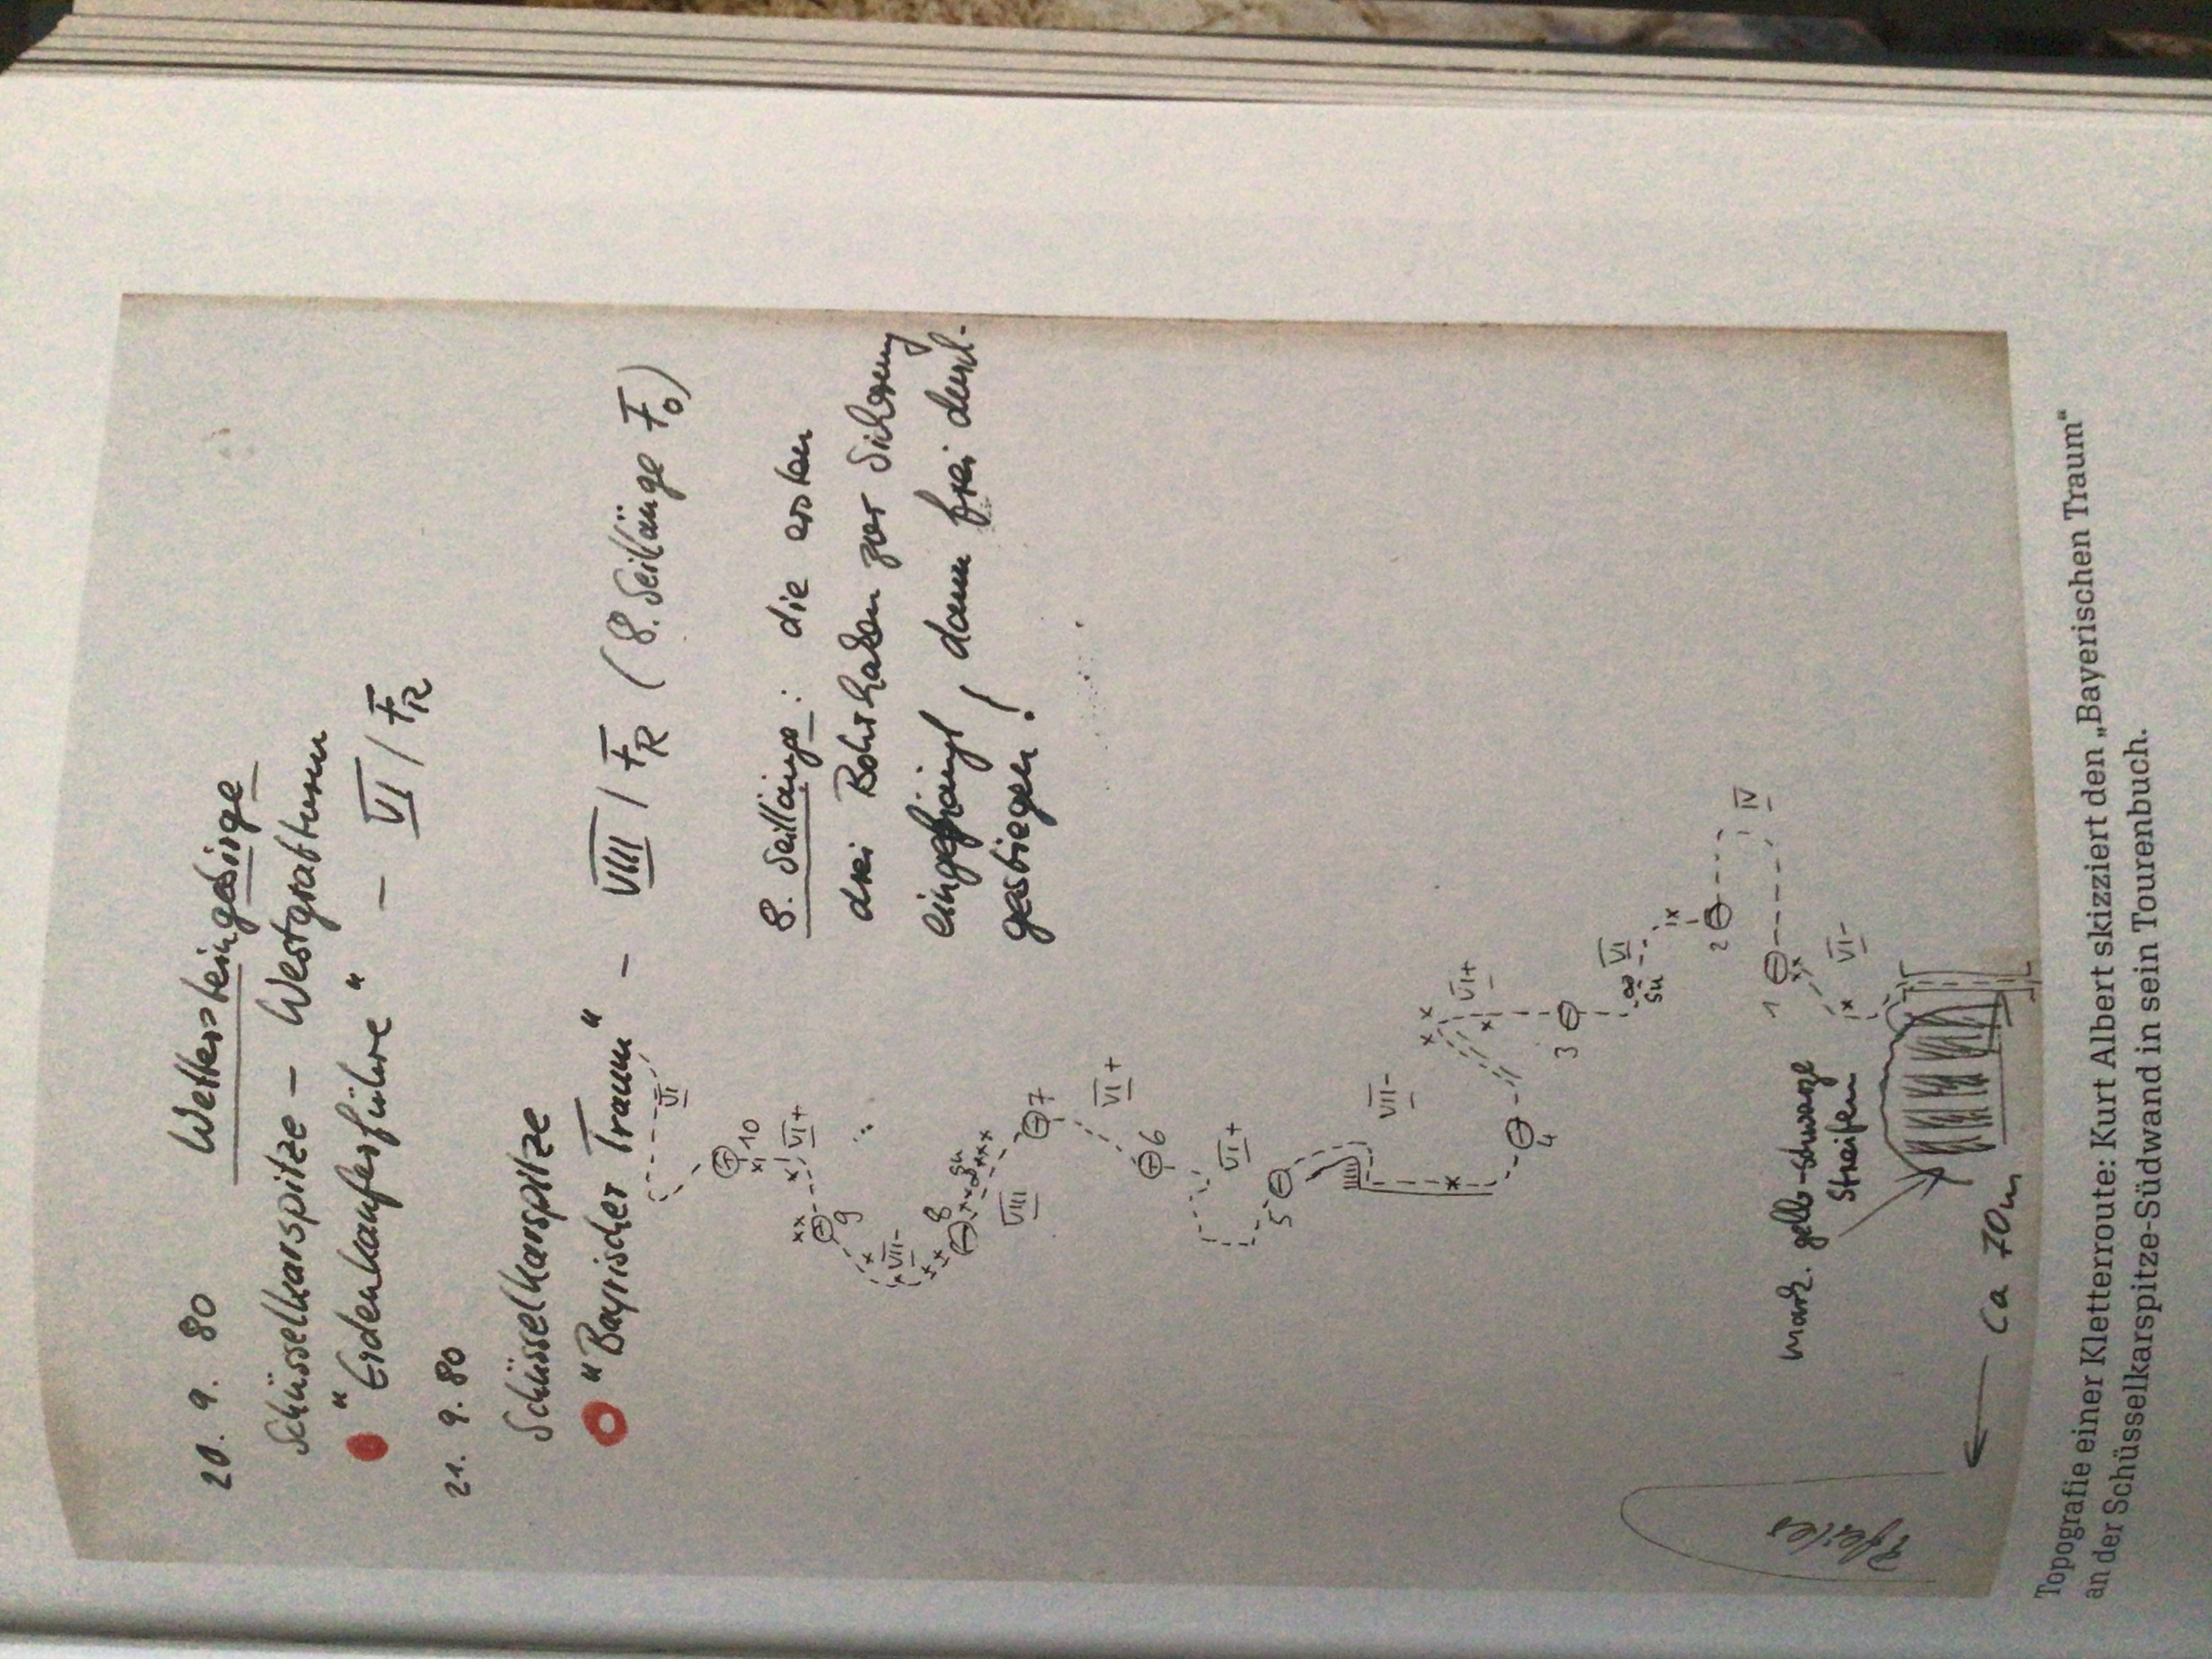 20. 9. 80 Wettersteingebirge
Schüsselkarspitze – Westgratturm
"Erdenkäuferführe" – VI / FR
21. 9. 80
Schüsselkarspitze
"Bayrischer Traum" – VIII / FR (8. Seillänge F0)
8. Seillänge: die ersten
drei Bohrhaken zur Sicherung
eingehängt, dann frei durch-
gestiegen!
VI
10
VI+
9
VII-
8
SU
VIII
7
VI+
6
VI+
5
VII-
4
VI+
3
VI
SU
2
IV
1
VI-
mark. gelb-schwarze
Streifen
Pfeiler
ca 70m
Topografie einer Kletterroute: Kurt Albert skizziert den „Bayerischen Traum“
an der Schüsselkarspitze-Südwand in sein Tourenbuch.